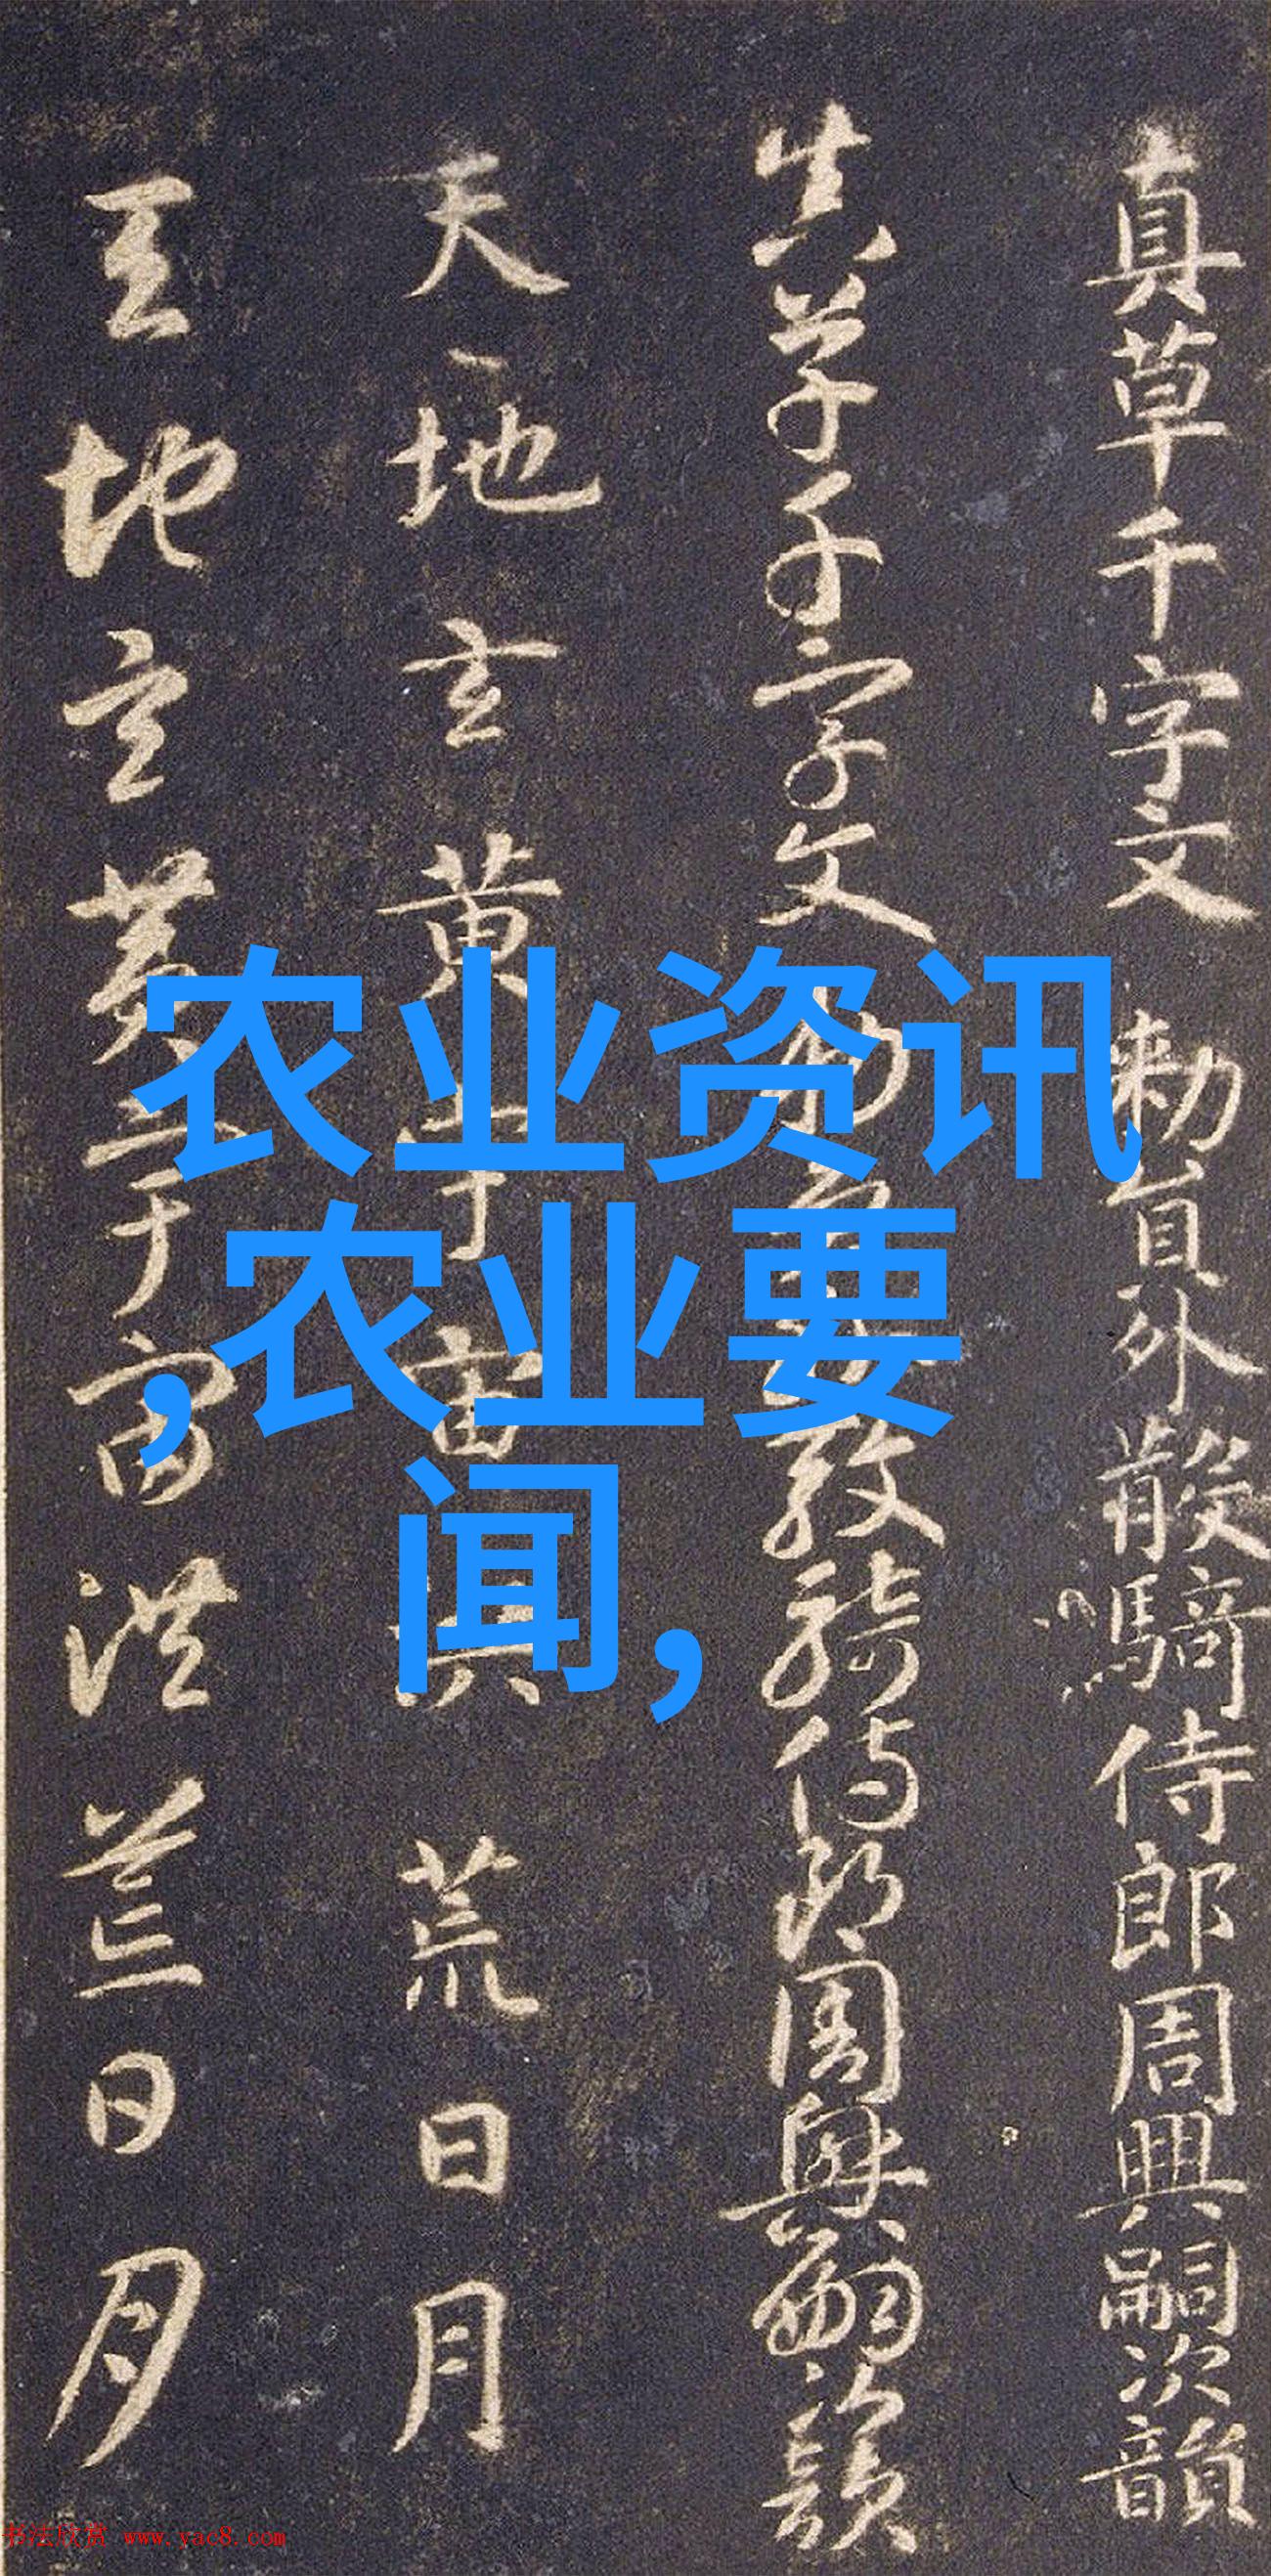 真草千字文 勅員外散騎侍郎周興嗣次韻
真草千字文 勅員外散騎侍郎周興嗣次韻
天地玄黄宇宙洪荒日月
天地玄黄宇宙洪荒日月
农业资讯
,农业要
闻,
书法欣赏 www.yac8.com